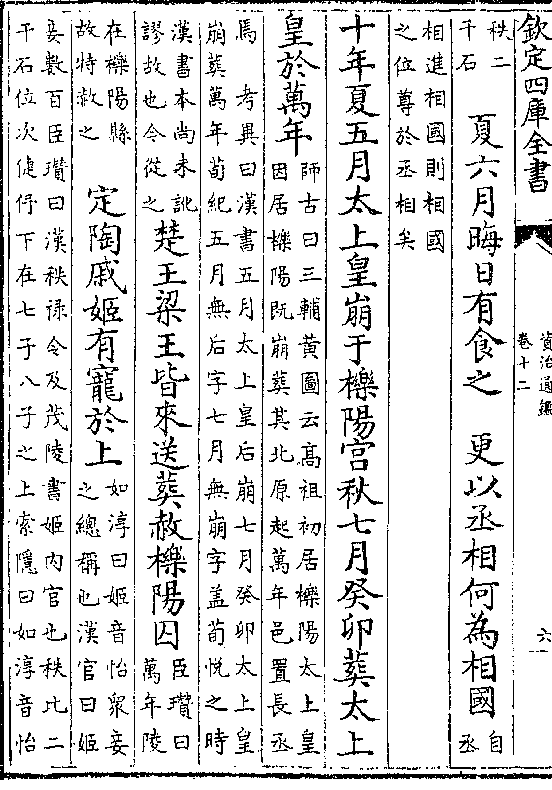 欽定四庫全書
資治通鑑
卷十二
六
秩二
千石
夏六月晦日有食之　更以丞相何為相國
自
丞
相進相國則相國
之位尊於丞相矣
十年夏五月太上皇崩于櫟陽宫秋七月癸卯葬太上
皇於萬年
師古曰三輔黄圖云高祖初居櫟陽太上皇
因居櫟陽既崩葬其北原起萬年邑置長丞
焉　考異曰漢書五月太上皇后崩七月癸卯太上皇
崩葬萬年荀紀五月無后字七月無崩字盖荀悦之時
漢書本尚未訛
謬故也今從之
楚王梁王皆來送葬赦櫟陽囚
臣瓚曰
萬年陵
在櫟陽縣
故特赦之
定陶戚姬有寵於上
如淳曰姬音怡衆妾
之總稱也漢官曰姬
妾數百臣瓚曰漢秩禄令及茂陵書姬内官也秩比二
千石位次倢伃下在七子八子之上索隱曰如淳音怡